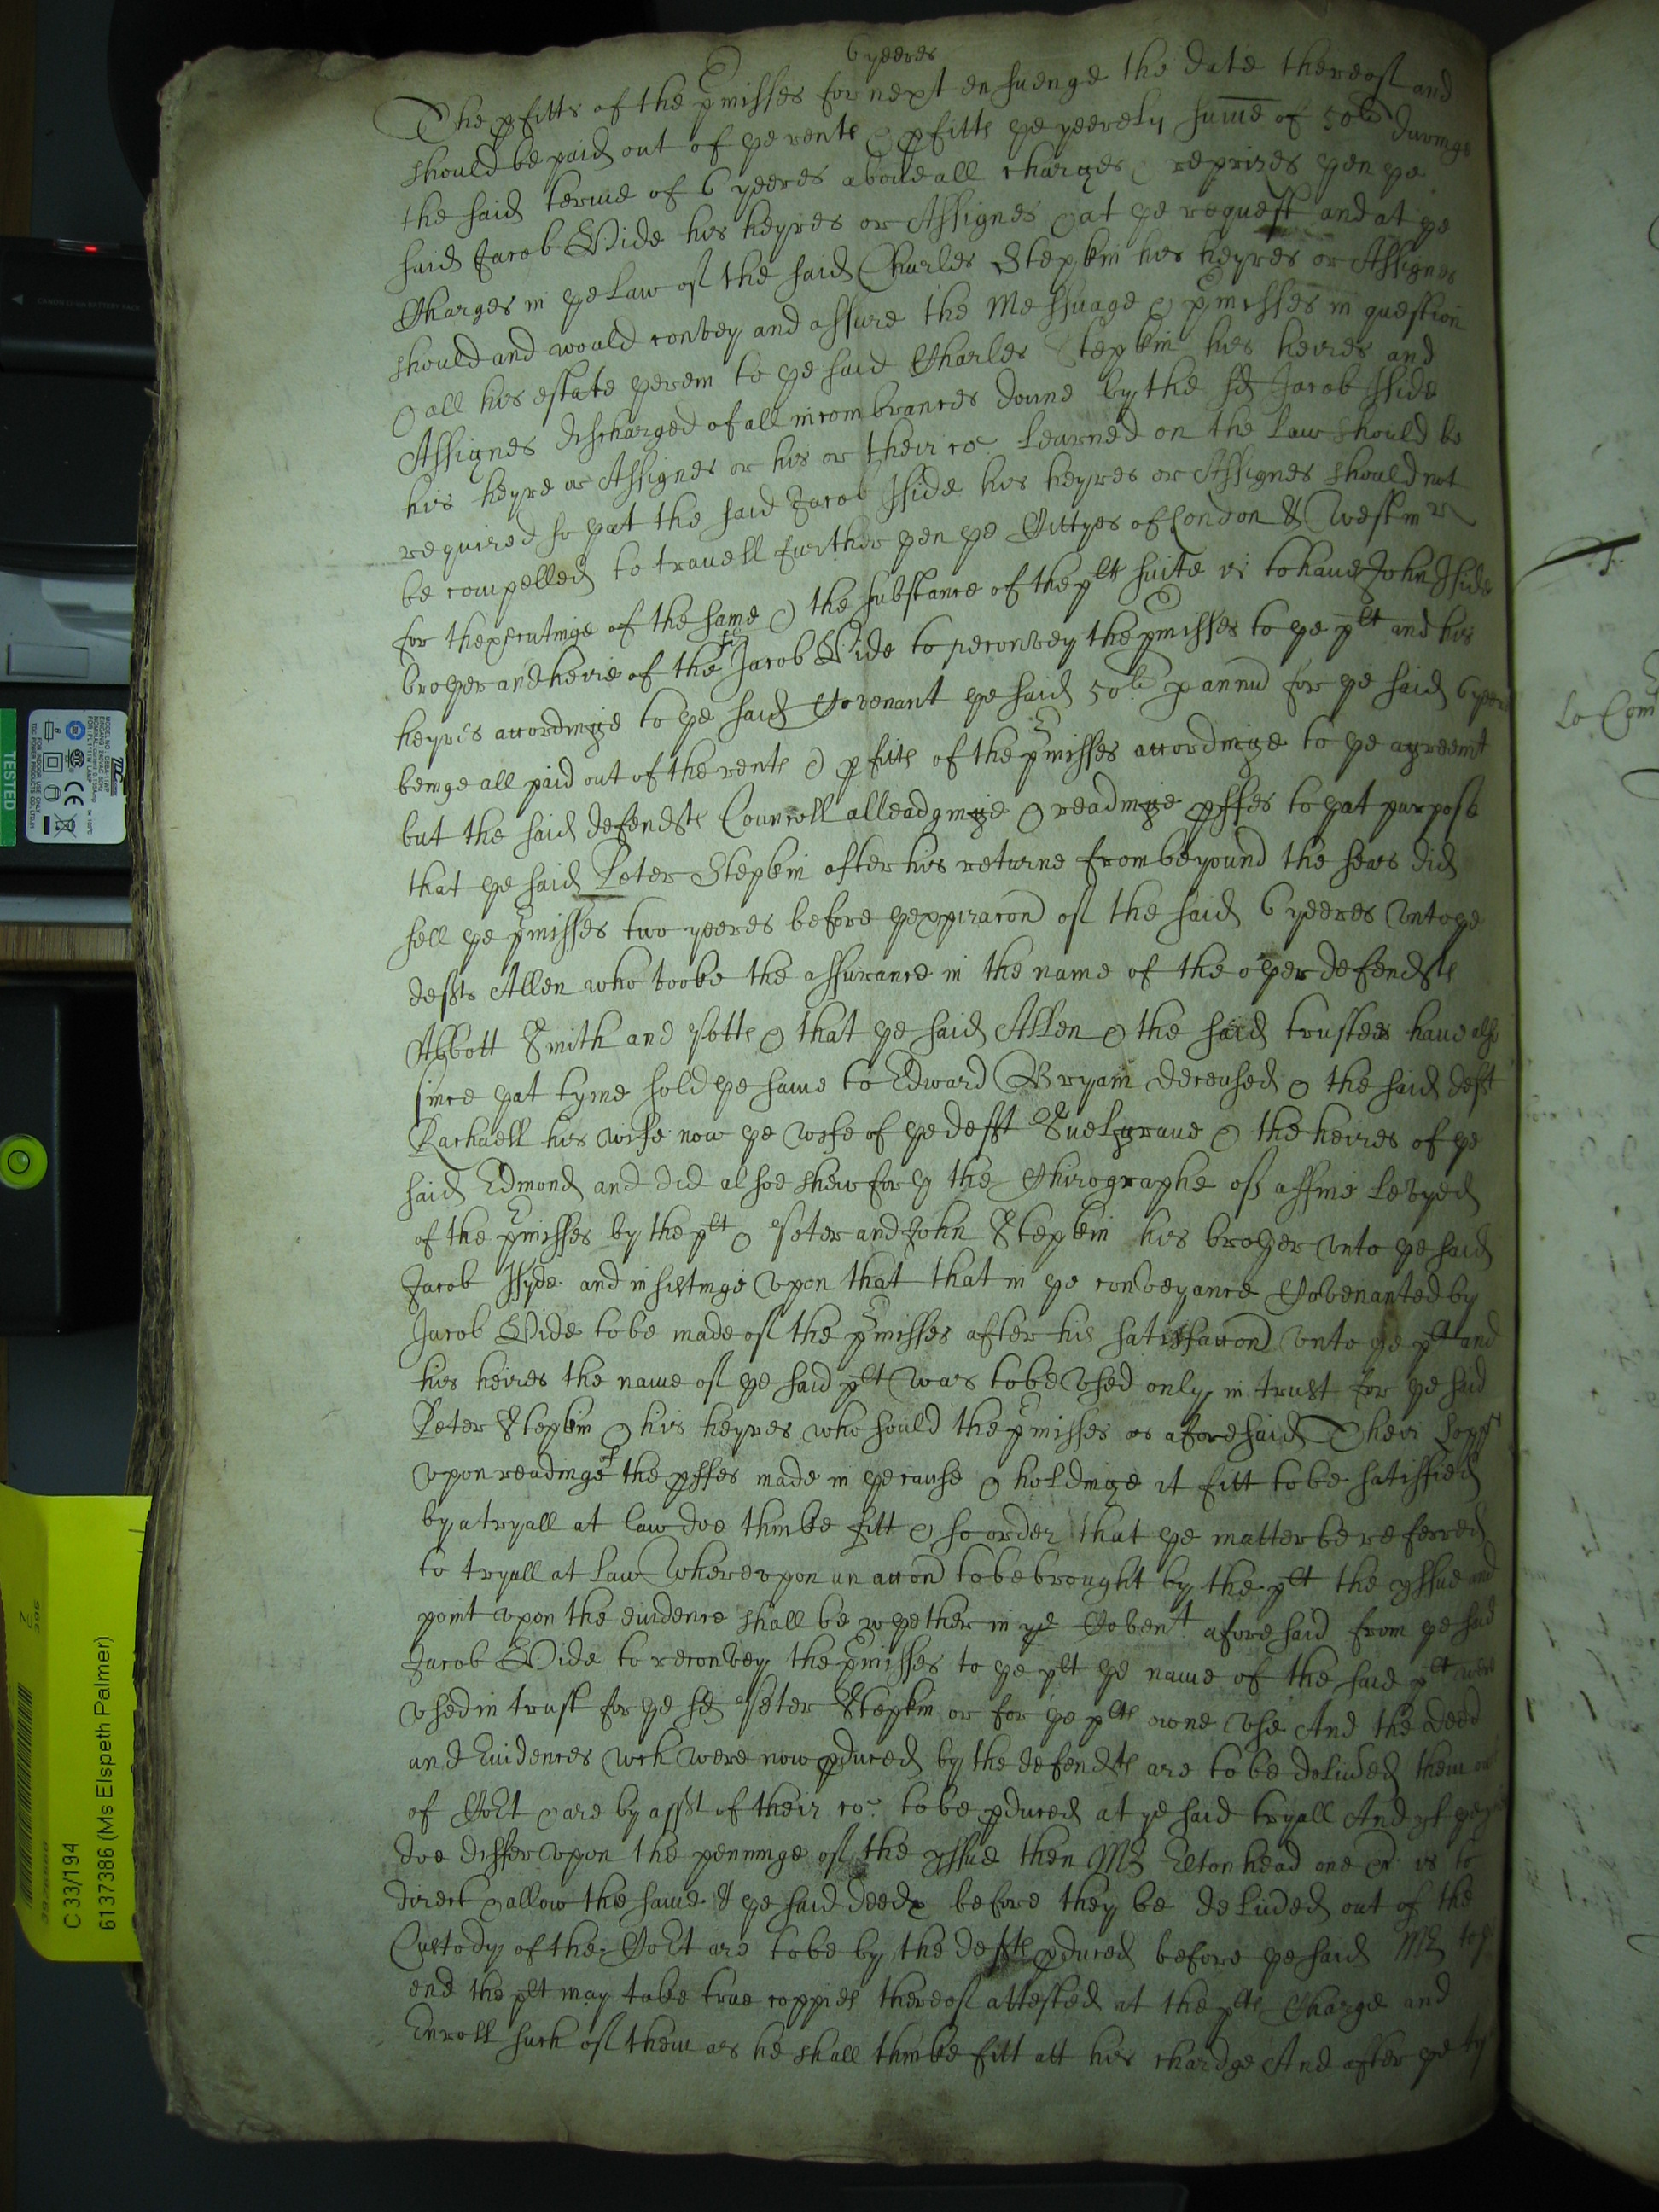 6 yeeres
The pfitts of the pmisses for next ensuenge the date thereof and
should be paid out of ye rents & pfitts ye yeerely sume of 50li duringe
the said terme of 6 yeeres aboue all charges & reprizes yen ye
said Jacob Hide his heyres or Assignes & at ye request and at ye
Charges in ye law of the said Charles Stepkin his heyres or Assignes
should and would convey and assure the Messuage & pmisses in question
& all his estate yerein to ye said Charles Stepkin his heires and
Assignes discharged of all incombrances donne by the sd Jacob Hide
his heyre or Assignes or his or their co: learned on the law should be
required so yat the said Jacob Hide his heyres or Assignes should not
be compelled to trauell further yen ye Cittyes of London & Westmr
for thexecutinge of the same & the substance of the plts suite is to haue John Hide
broyer and heire of the sd Jacob Hide to reconvey the pmisses to ye plt and his
heyres accordinge to ye said Covenant ye said 50li p annu for ye said 6 yeeres
beinge all paid out of the rents & pfitts of the pmisses accordinge to ye agreemt
but the said defendts Councell alleadginge & readinge pffes to yat purpose
that ye said Peter Stepkin after his returne from beyound the seas did
sell ye pmisses two yeeres before yexpiracon of the said 6 yeeres vnto ye
defts Allen who tooke the assurance in the name of the oyer defendts
Abbott Smith and Potts & that ye said Allen & the said trustees haue also
since yat tyme sold ye same to Edward Bryam deceased & the said deft
Rachaell his wife now ye wife of ye defft Suelgraue & the heires of ye
said Edmond and did alsoe shew forth the Chirographe of a ffine levyed
of the pmisses by the plt & Peter and John Stepkin his broyer vnto ye said
Jacob Hyde and insistinge vpon that that in ye conveyance Covenanted by
Jacob Hide to be made of the pmisses after his satisfaccon vnto ye plt and
his heires the name of ye said plt was to be vsed only in trust for ye said
Peter Stepkin & his heyres who sould the pmisses as aforesaid Their Lopps
vpon readinge of the pffes made in ye cause & holdinge it fitt to be satisfied
by a tryall at law doe thinke fitt & so order that ye matter be referred
to tryall at law Wherevpon an accon to be brought by the plt the yssue and
point vpon the euidence shall be whether in ye Covent aforesaid from ye said
Jacob Hide to reconvey the pmisses to ye plt ye name of the said plt were
vsed in trust for ye sd Peter Stepkin or for ye plts owne vse And the deed
and Euidences wch were now pduced by the defendts are to be deliued them out
of Cort & are by asst of their co: to be pduced at ye said tryall And yf ye
doe differ vpon the penninge of the yssue then Mr Eltonhead one &c is to
direct & allow the same & ye said deeds before they be deliued out of the
Custody of the Cort are to be by the deffts pduced before ye said Mr to ye
end the plt may take true coppies thereof attested at the plts Charge and
Enroll such of them as he shall thinke fitt att his chardge And after ye try
to Com
TESTED
CANON LI-ion BATTERY PACK
C 33/194
6137386 (Ms Elspeth Palmer)